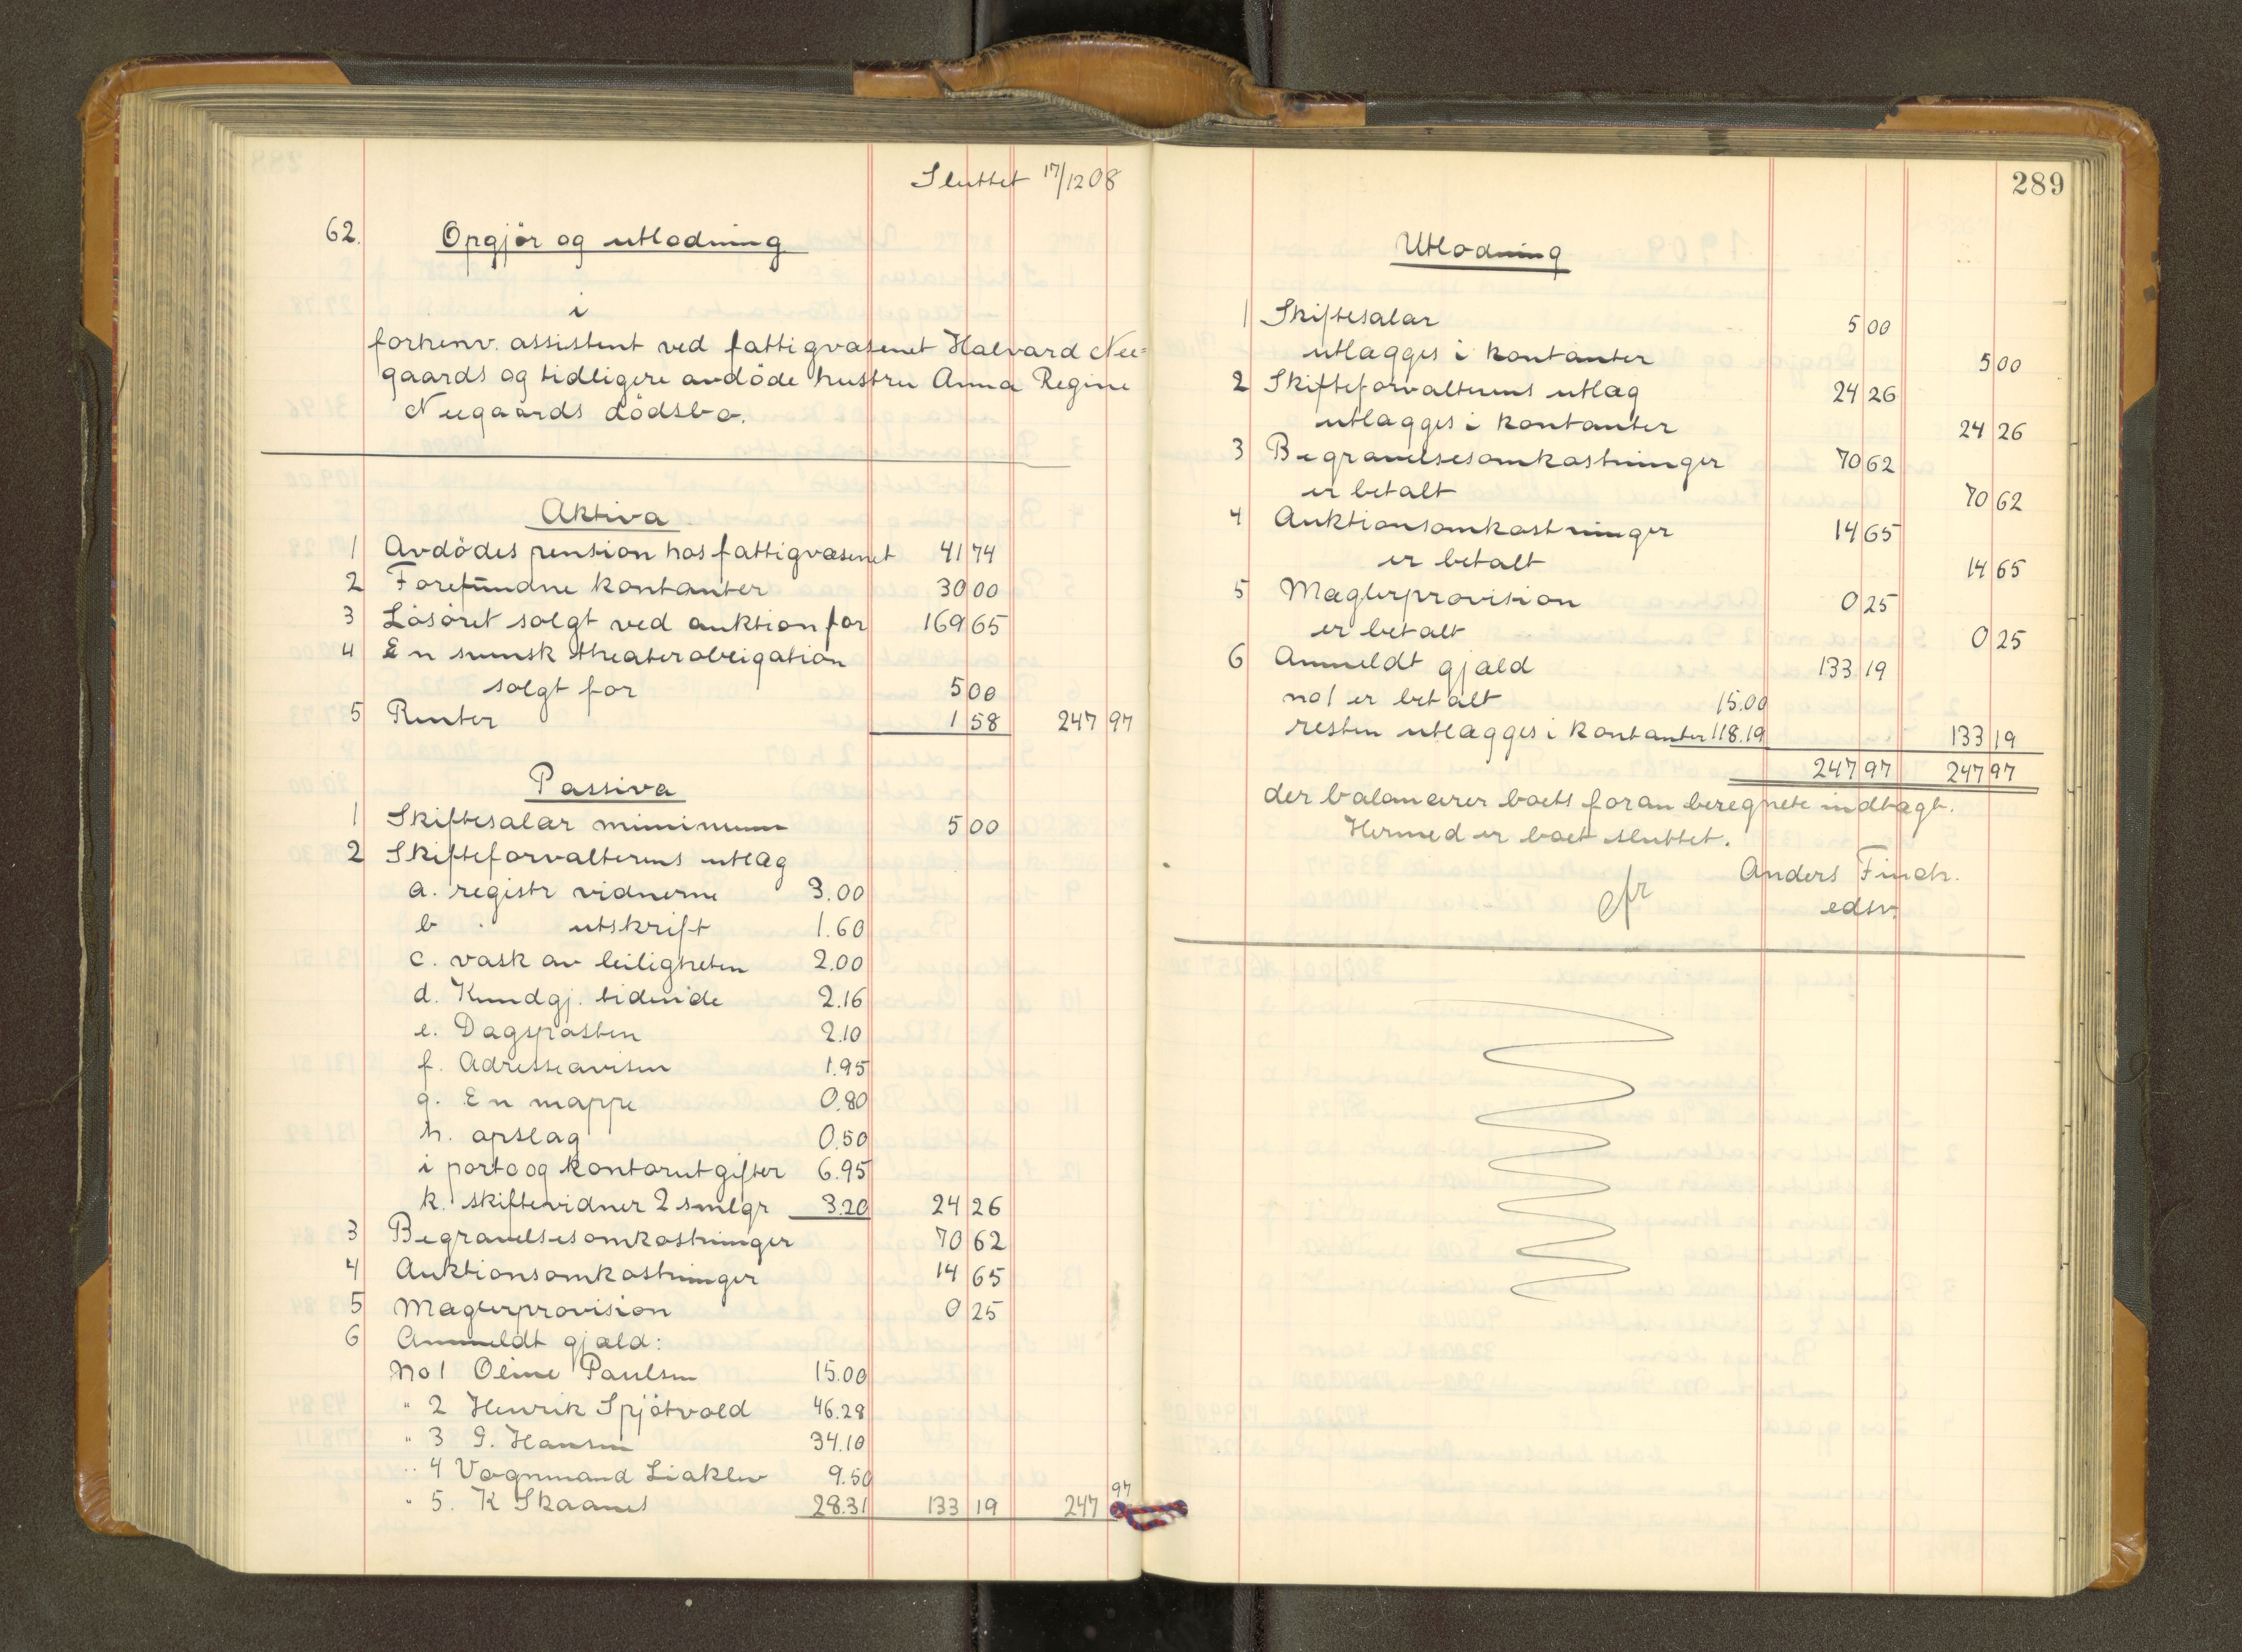 Sluttet 17/12 08
62. Opgjör og utlodning
i
forhenv. assistent ved fattigvæsenet Halvard Nee=
gaards og tidligere avdöde hustru Anna Regine
Neegaards dödsbo.
Aktiva
1 Avdödes pension hos fattigvæsenet 41 74
2 Forefundne kontanter 30 00
3 Lösöret solgt ved auktion for 169 65
4 En svensk theaterobligation
solgt for 5 00
5 Renter 1 58 247 97
Passiva
1 Skiftesalær minimum 5 00
2 Skifteforvalterens utlæg
a. registr vidnerne 3.00
b " utskrift 1.60
c. vask av leiligheten 2.00
d. Kundgj. tidende 2.16
e. Dagsposten 2.10
f. Adresseavisen 1.95
g. En mappe 0.80
h. opslag 0.50
i porto og kontorutgifter 6.95
k. skiftevidner 2 smlgr 3.20 24 26
3 Begravelsesomkostninger 70 62
4 Auktionsomkostninger 14 65
5 Mæglerprovision 0 25
6 Anmeldt gjæld:
No 1 Oline Paulsen 15.00
" 2 Henrik Spjötvold 46.28
" 3 G. Hansen 34.10
" 4 Vognmand Liaklev 9.50
" 5. K Skaanes 28.31 133 19 247 97
289
Utlodning
1 Skiftesalær 5 00
utlægges i kontanter 5 00
2 Skifteforvalterens utlæg 24 26
utlægges i kontanter 24 26
3 Begravelsesomkostninger 70 62
er betalt 70 62
4 Auktionsomkostninger 14 65
er betalt 14 65
5 Mæglerprovision 0 25
er betalt 0 25
6 Anmeldt gjæld 133 19
no 1 er betalt 15.00
resten utlægges i kontanter 118.19 133 19
247 97 247 97
der balancerer boets foran beregnete indtægt.
Hermed er boet sluttet.
Anders Finch.
cfr edsv.